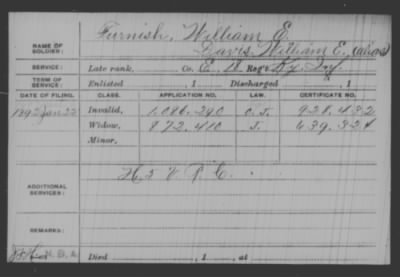 Furnish, William E.
NAME OF SOLDIER: Davis, William E. (alias)
SERVICE: Late rank, Co. E, Reg't Ky. Inf.
TERM OF SERVICE: Enlisted , 1 Discharged , 1
DATE OF FILING. CLASS. APPLICATION NO. LAW. CERTIFICATE NO.
1892 Jan 22 Invalid, 1.086.290 928.432
Widow, 872.410 639.324
Minor,
ADDITIONAL SERVICES:
REMARKS:
Died , 1 , at